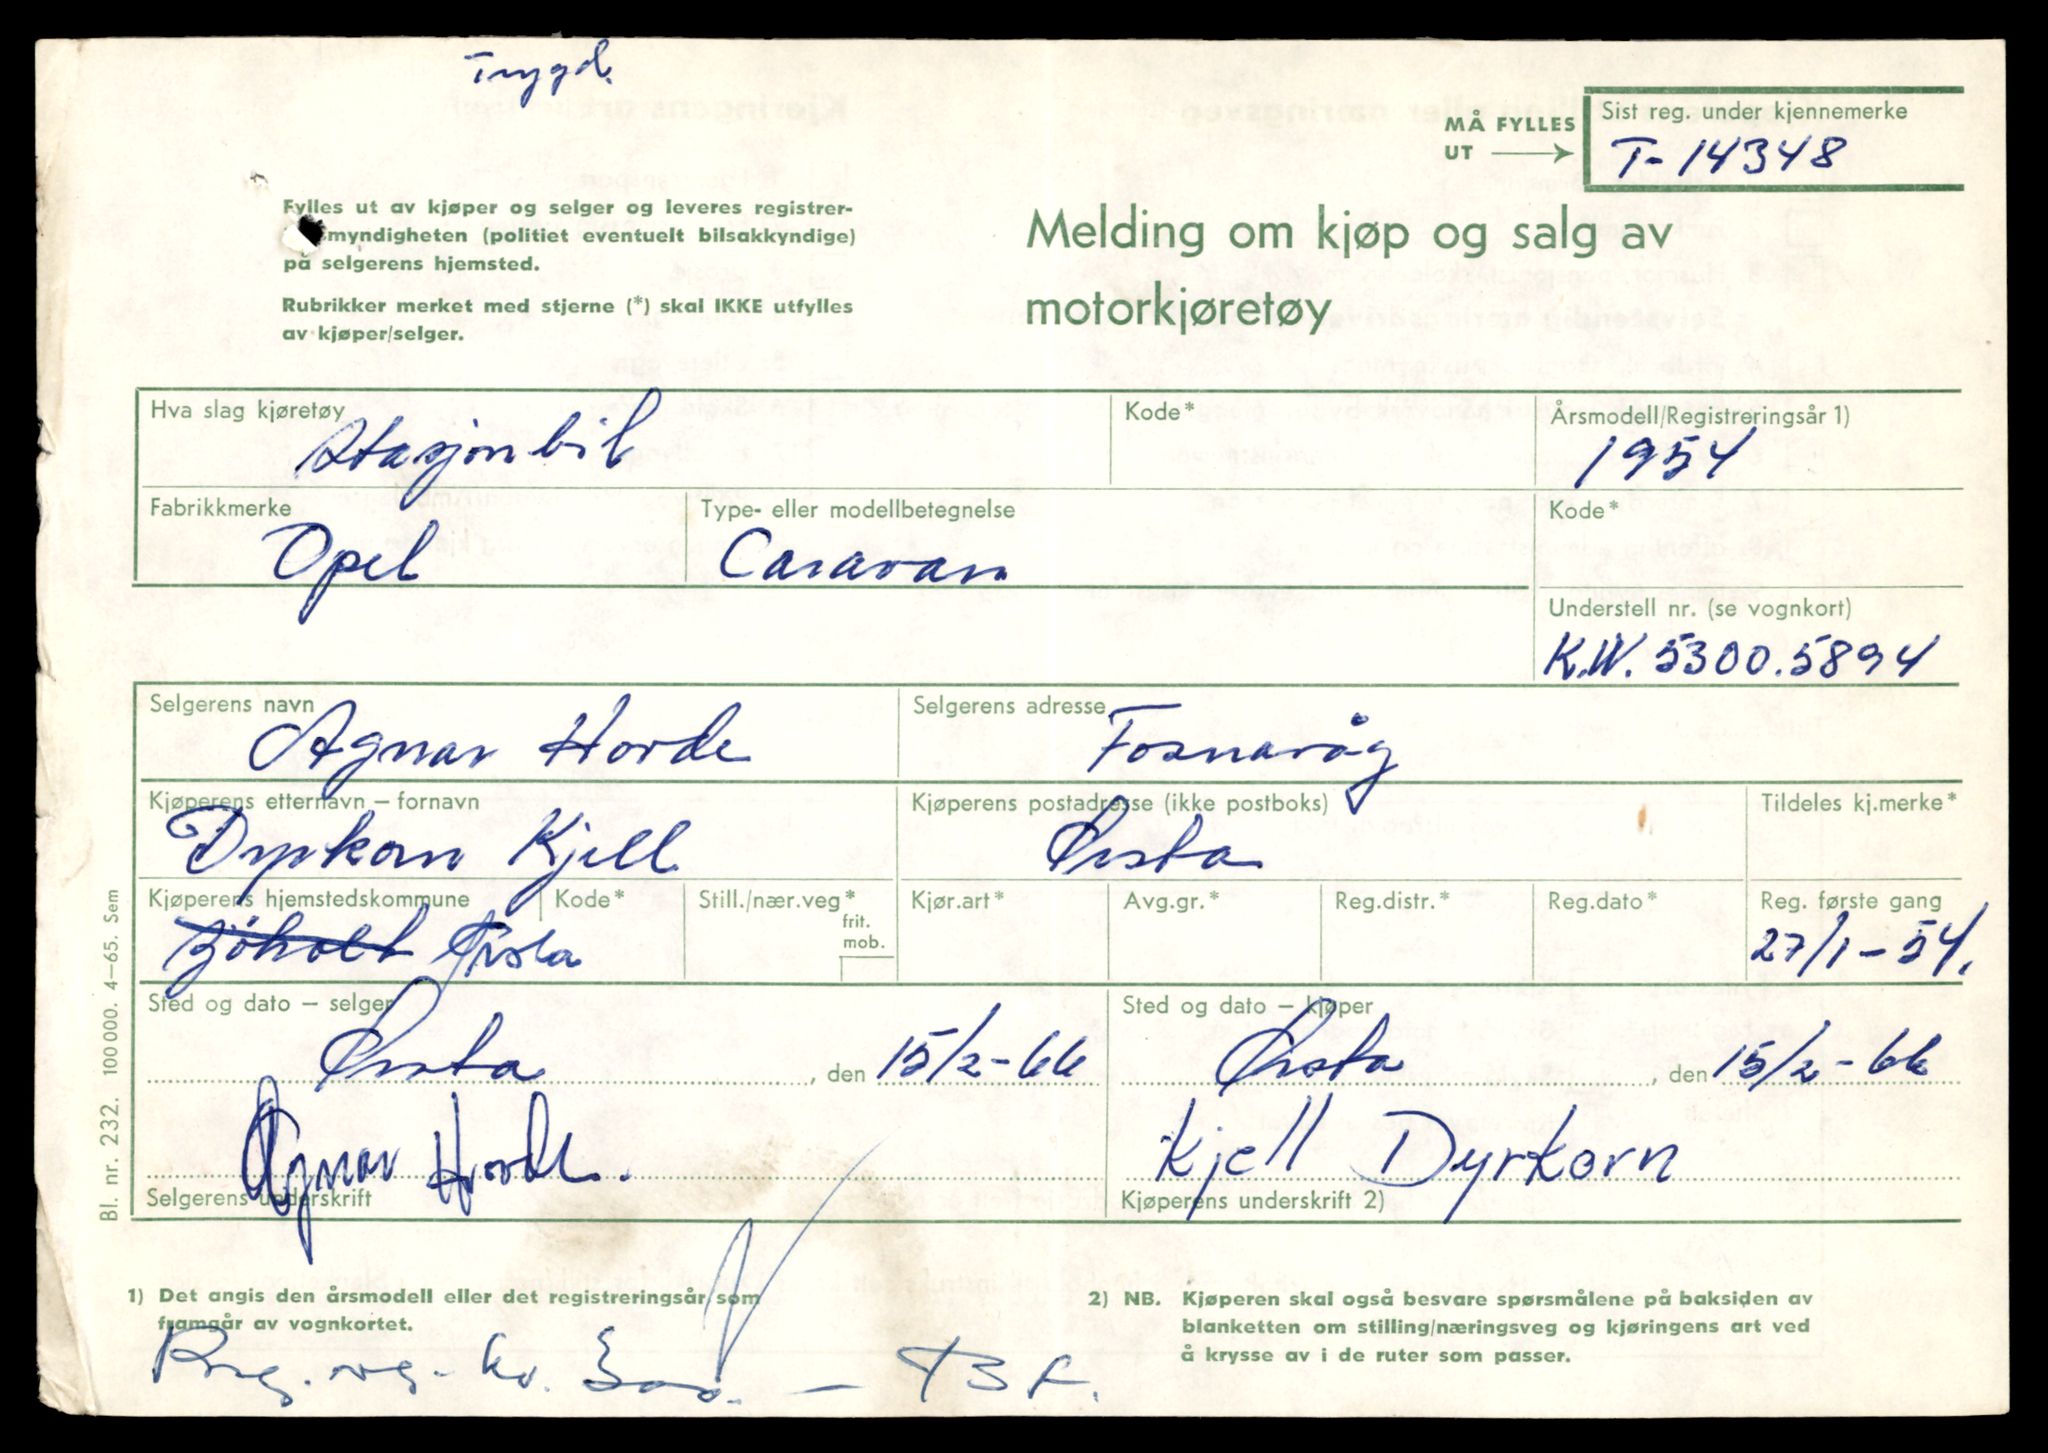 Trygd.
MÅ FYLLES UT
Sist reg. under kjennemerke
T-14348
Fylles ut av kjøper og selger og leveres registrer-
myndigheten (politiet eventuelt bilsakkyndige)
på selgerens hjemsted.
Rubrikker merket med stjerne (*) skal IKKE utfylles
av kjøper/selger.
Melding om kjøp og salg av
motorkjøretøy
Hva slag kjøretøy
Stasjonbil
Kode*
Årsmodell/Registreringsår 1)
1954
Fabrikkmerke
Opel
Type- eller modellbetegnelse
Caravan
Kode*
Understell nr. (se vognkort)
K.W. 5300.5894
Selgerens navn
Agnar Horde
Selgerens adresse
Fosnavåg
Kjøperens etternavn – fornavn
Dyrkorn Kjell
Kjøperens postadresse (ikke postboks)
Ørsta
Tildeles kj.merke*
Kjøperens hjemstedskommune
Sjøholt Ørsta
Kode*
Still./nær.veg*
frit.
mob.
Kjør.art*
Avg.gr.*
Reg.distr.*
Reg.dato*
Reg. første gang
27/1-54.
Sted og dato – selger
Ørsta, den 15/2-66
Sted og dato – kjøper
Ørsta, den 15/2-66
Agnar Horde.
Selgerens underskrift
Kjell Dyrkorn
Kjøperens underskrift 2)
Bl. nr. 232. 100 000. 4–65. Sem
1) Det angis den årsmodell eller det registreringsår som
framgår av vognkortet.
2) NB. Kjøperen skal også besvare spørsmålene på baksiden av
blanketten om stilling/næringsveg og kjøringens art ved
å krysse av i de ruter som passer.